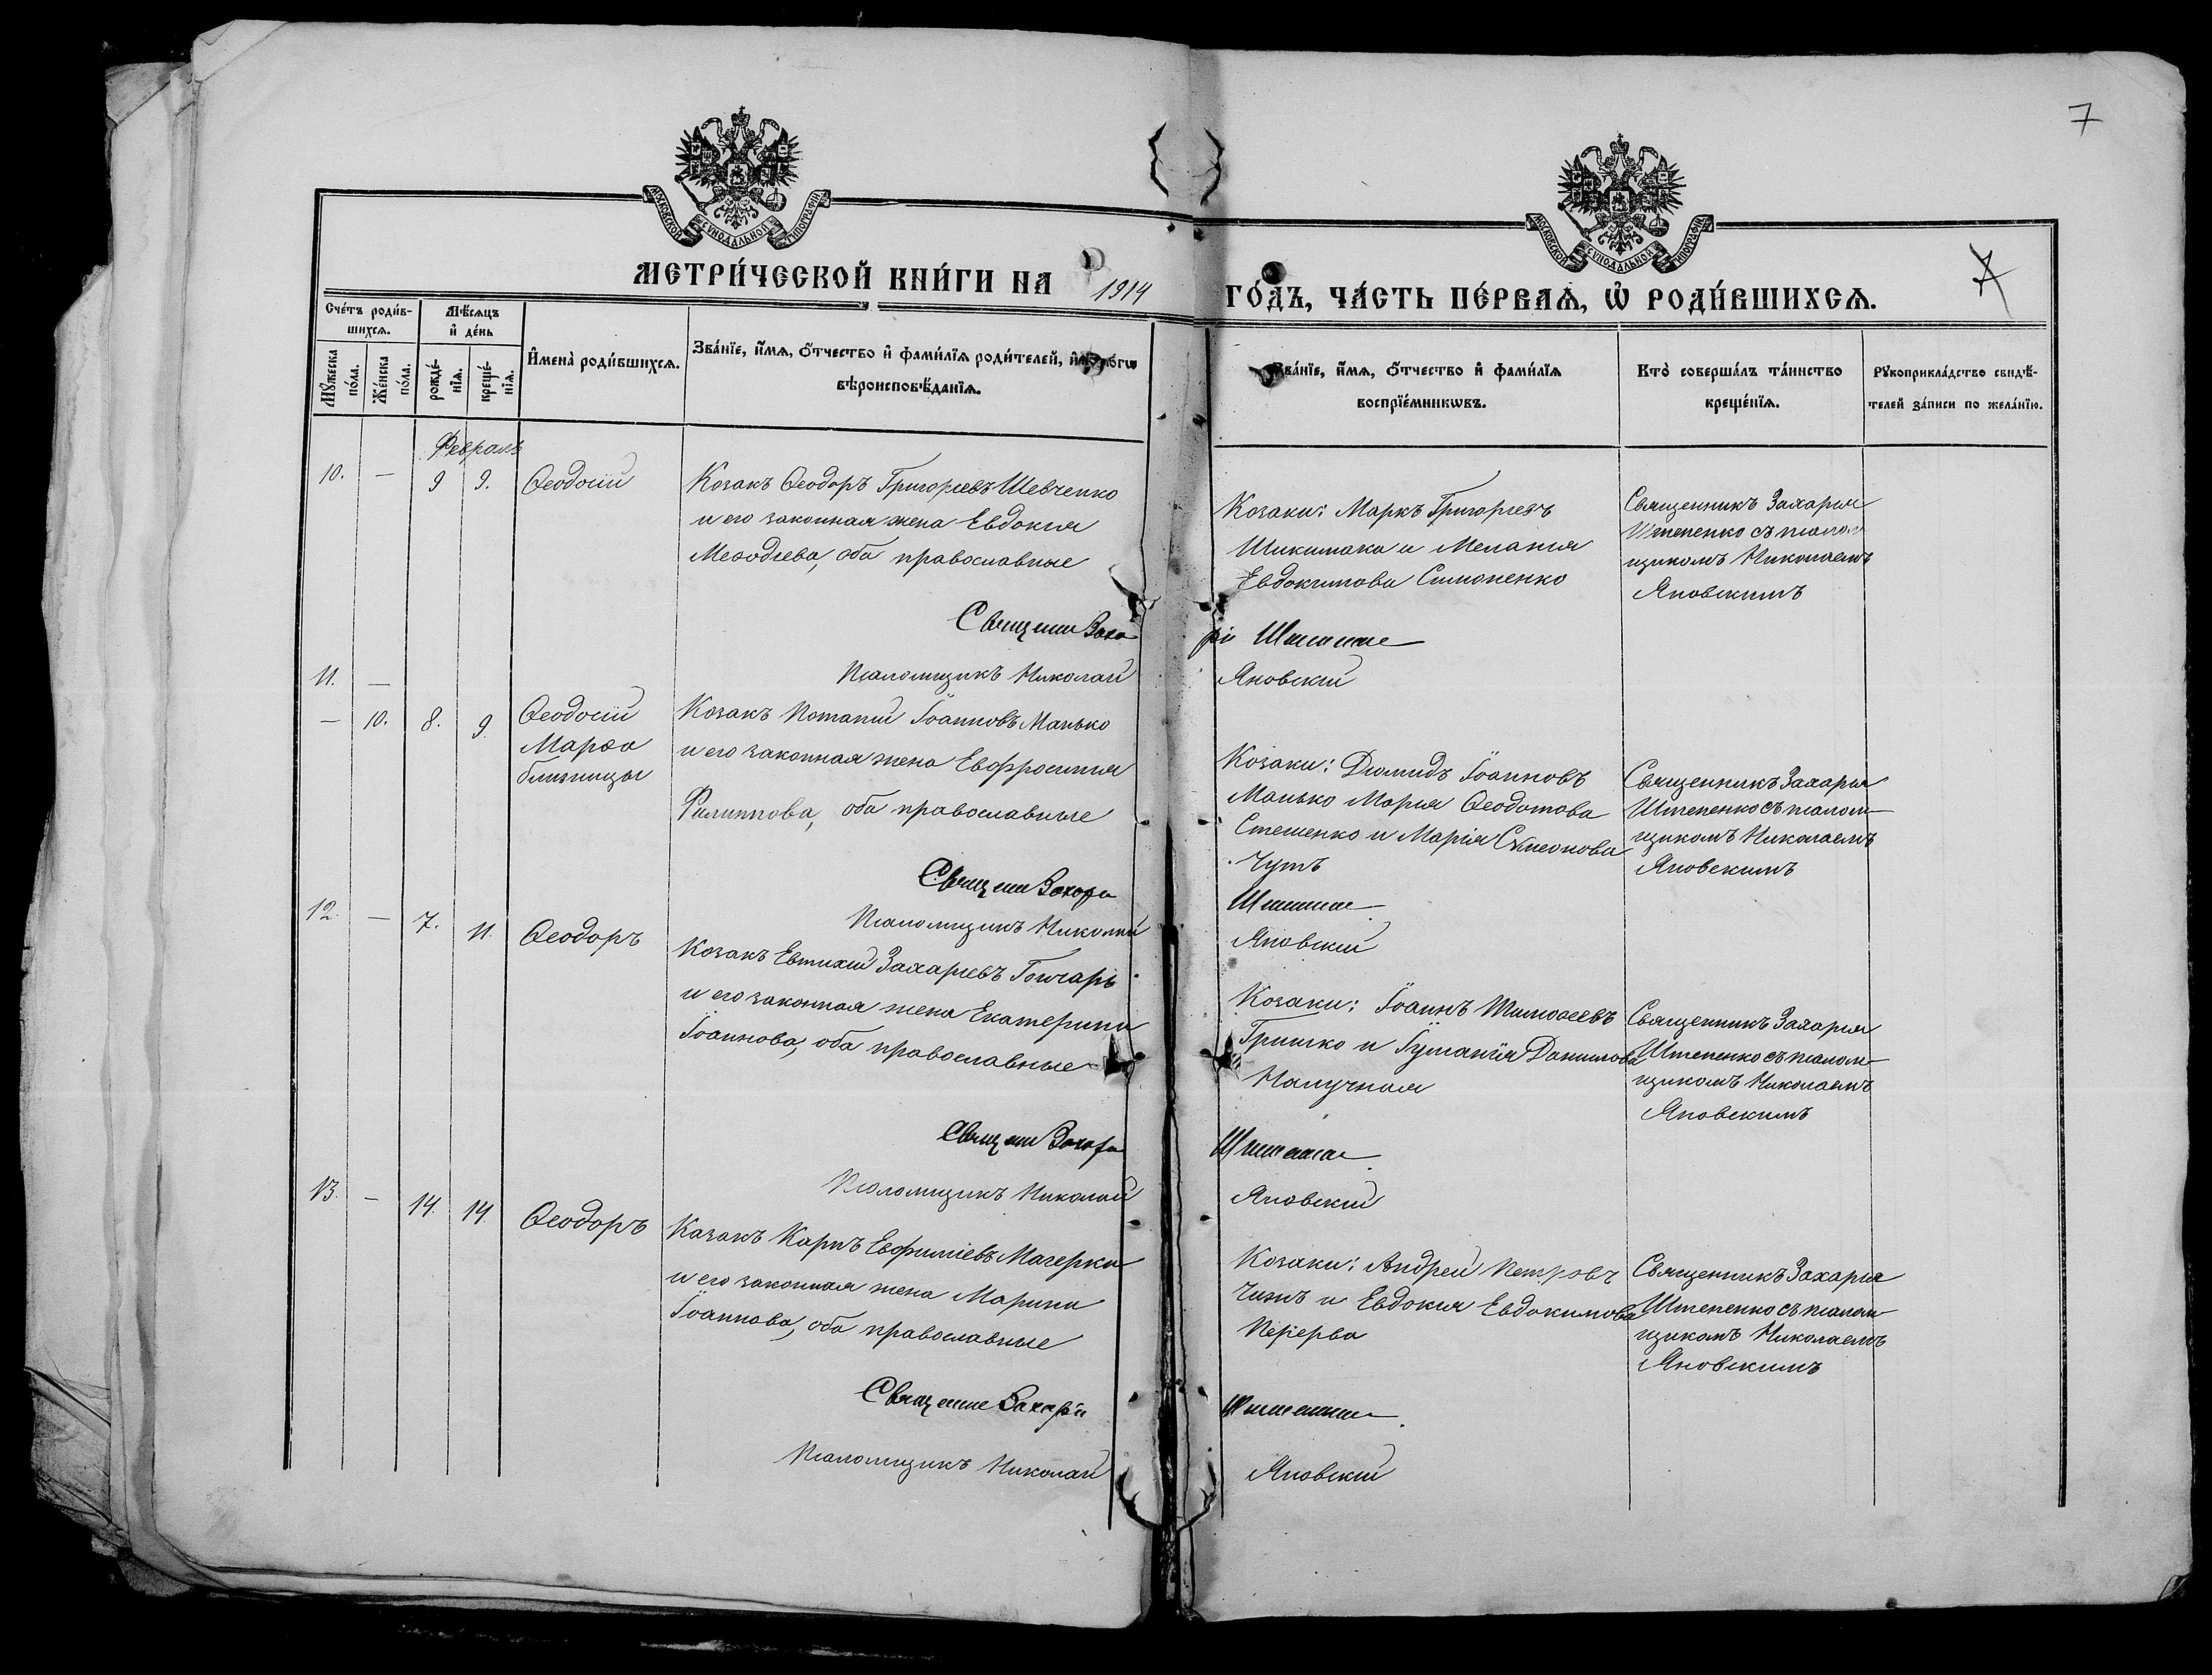 7
МОСКОВСКОЙ СУНОДАЛЬНОЙ ТИПОГРАФІИ
МОСКОВСКОЙ СУНОДАЛЬНОЙ ТИПОГРАФІИ
МЕТРИ́ЧЕСКОЙ КНИ́ГИ НА 1914 ГО́ДЪ, ЧА́СТЬ ПЕ́РВАѦ, Ѡ҆ РОДИ́ВШИХСѦ.
7
Сче́тъ роди́в-
шихсѧ.
Мѣ́сяцъ
и҆ де́нь
Мꙋ́жеска
по́ла.
Же́нска
по́ла.
рожде́-
нїѧ.
креще́-
нїѧ.
И҆мена̀ роди́вшихсѧ.
Зва́нїе, и҆́мѧ, ѻ҆́тчество и҆ фами́лїѧ роди́телей, и҆
вѣроисповѣ́данїѧ.
Зва́нїе, и҆́мѧ, ѻ҆́тчество и҆ фами́лїѧ
воспрїе́мникѡвъ.
Кто̀ соверша́лъ та́инство
креще́нїѧ.
Рꙋкоприкла́дство свидѣ́-
телей за́писи по жела́нїю.
Февраль
10. — 9 9. Ѳеодосій
Козакъ Ѳеодоръ Григоріевъ Шевченко
и его законная жена Евдокія
Меѳодіева, оба православные
Козаки: Маркъ Григорьевъ
и Меланія
Евдокимова Симоненко
Священникъ Захарія
Штепенко съ псалом
щикомъ Николаемъ
Яновскимъ
Священ Заха рій Штепенко
Псаломщикъ Николай Яновскій
11. —
— 10. 8. 9. Ѳеодосій
Марѳа
близнецы
Козакъ Потапій Іоанновъ Манько
и его законная жена Евфросинія
Филиппова, оба православные
Козаки: Діомидъ Іоанновъ
Манько Марія Ѳеодотова
Стешенко и Марія Сѵмеонова
Чутъ
Священникъ Захарія
Штепенко съ псалом-
щикомъ Николаемъ
Яновскимъ
Священ Захарій Штепенко
Псаломщикъ Николай Яновскій
12. — 7. 11. Ѳеодоръ
Козакъ Евтихій Захаріевъ Гончаръ
и его законная жена Екатерина
Іоаннова, оба православные
Козаки: Іоаннъ Тимоѳеевъ
Гришко и Іуліанія Данилова
Священникъ Захарія
Штепенко съ псалом-
щикомъ Николаемъ
Яновскимъ
Священ Захарій Штепенко
Псаломщикъ Николай Яновскій
13. — 14. 14. Ѳеодоръ
Казакъ Карпъ Евфиміевъ Магерка
и его законная жена Марина
Іоаннова, оба православные
Козаки: Андрей Петровъ
Чижъ и Евдокія Евдокимова
Перерва
Священникъ Захарія
Штепенко съ псалом
щикомъ Николаемъ
Яновскимъ
Священ Захарій Штепенко
Псаломщикъ Николай Яновскій